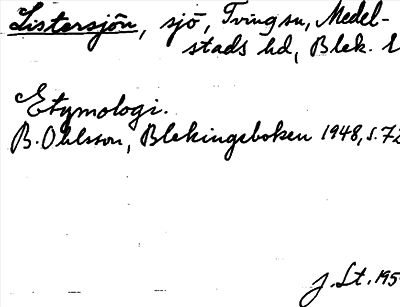 Listersjön, sjö, Tving sn, Medel-
stads hd, Blek. l
Etymologi.
B. Ohlsson, Blekingeboken 1948, s. 72
J. Lt. 195